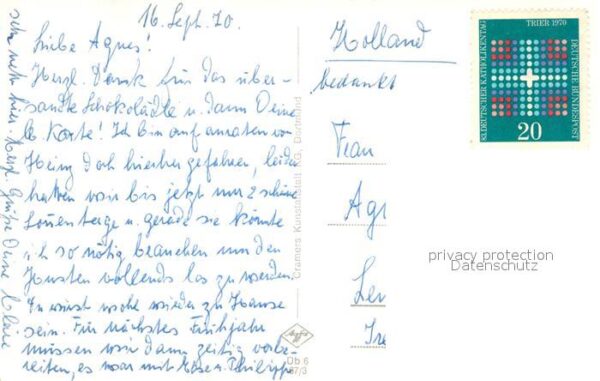 16. Sept. 70.
Liebe Agnes!
Herzl. Dank für das über-
sandte Schokolädle u. dann Deine
lb. Karte! Ich bin auf anraten von
Heinz doch hierher gefahren, leider
hatten wir bis jetzt nur 2 schöne
Sonnentage u. gerade sie könnte
ich so nötig brauchen um den
Husten vollends los zu werden.
Du wirst wohl wieder zu Hause
sein. Für nächstes Frühjahr
müssen wir dann zeitig vorbe-
reiten, es war mit u. Philipp
sehr nett hier. Herzl. Grüße Deine Cläre
Holland
bedankt
Frau
Agr
Ler
Ire
83. DEUTSCHER KATHOLIKENTAG
TRIER 1970
DEUTSCHE BUNDESPOST
20
Cramers Kunstanstalt KG, Dortmund
Ob. 6
67/3
privacy protection
Datenschutz